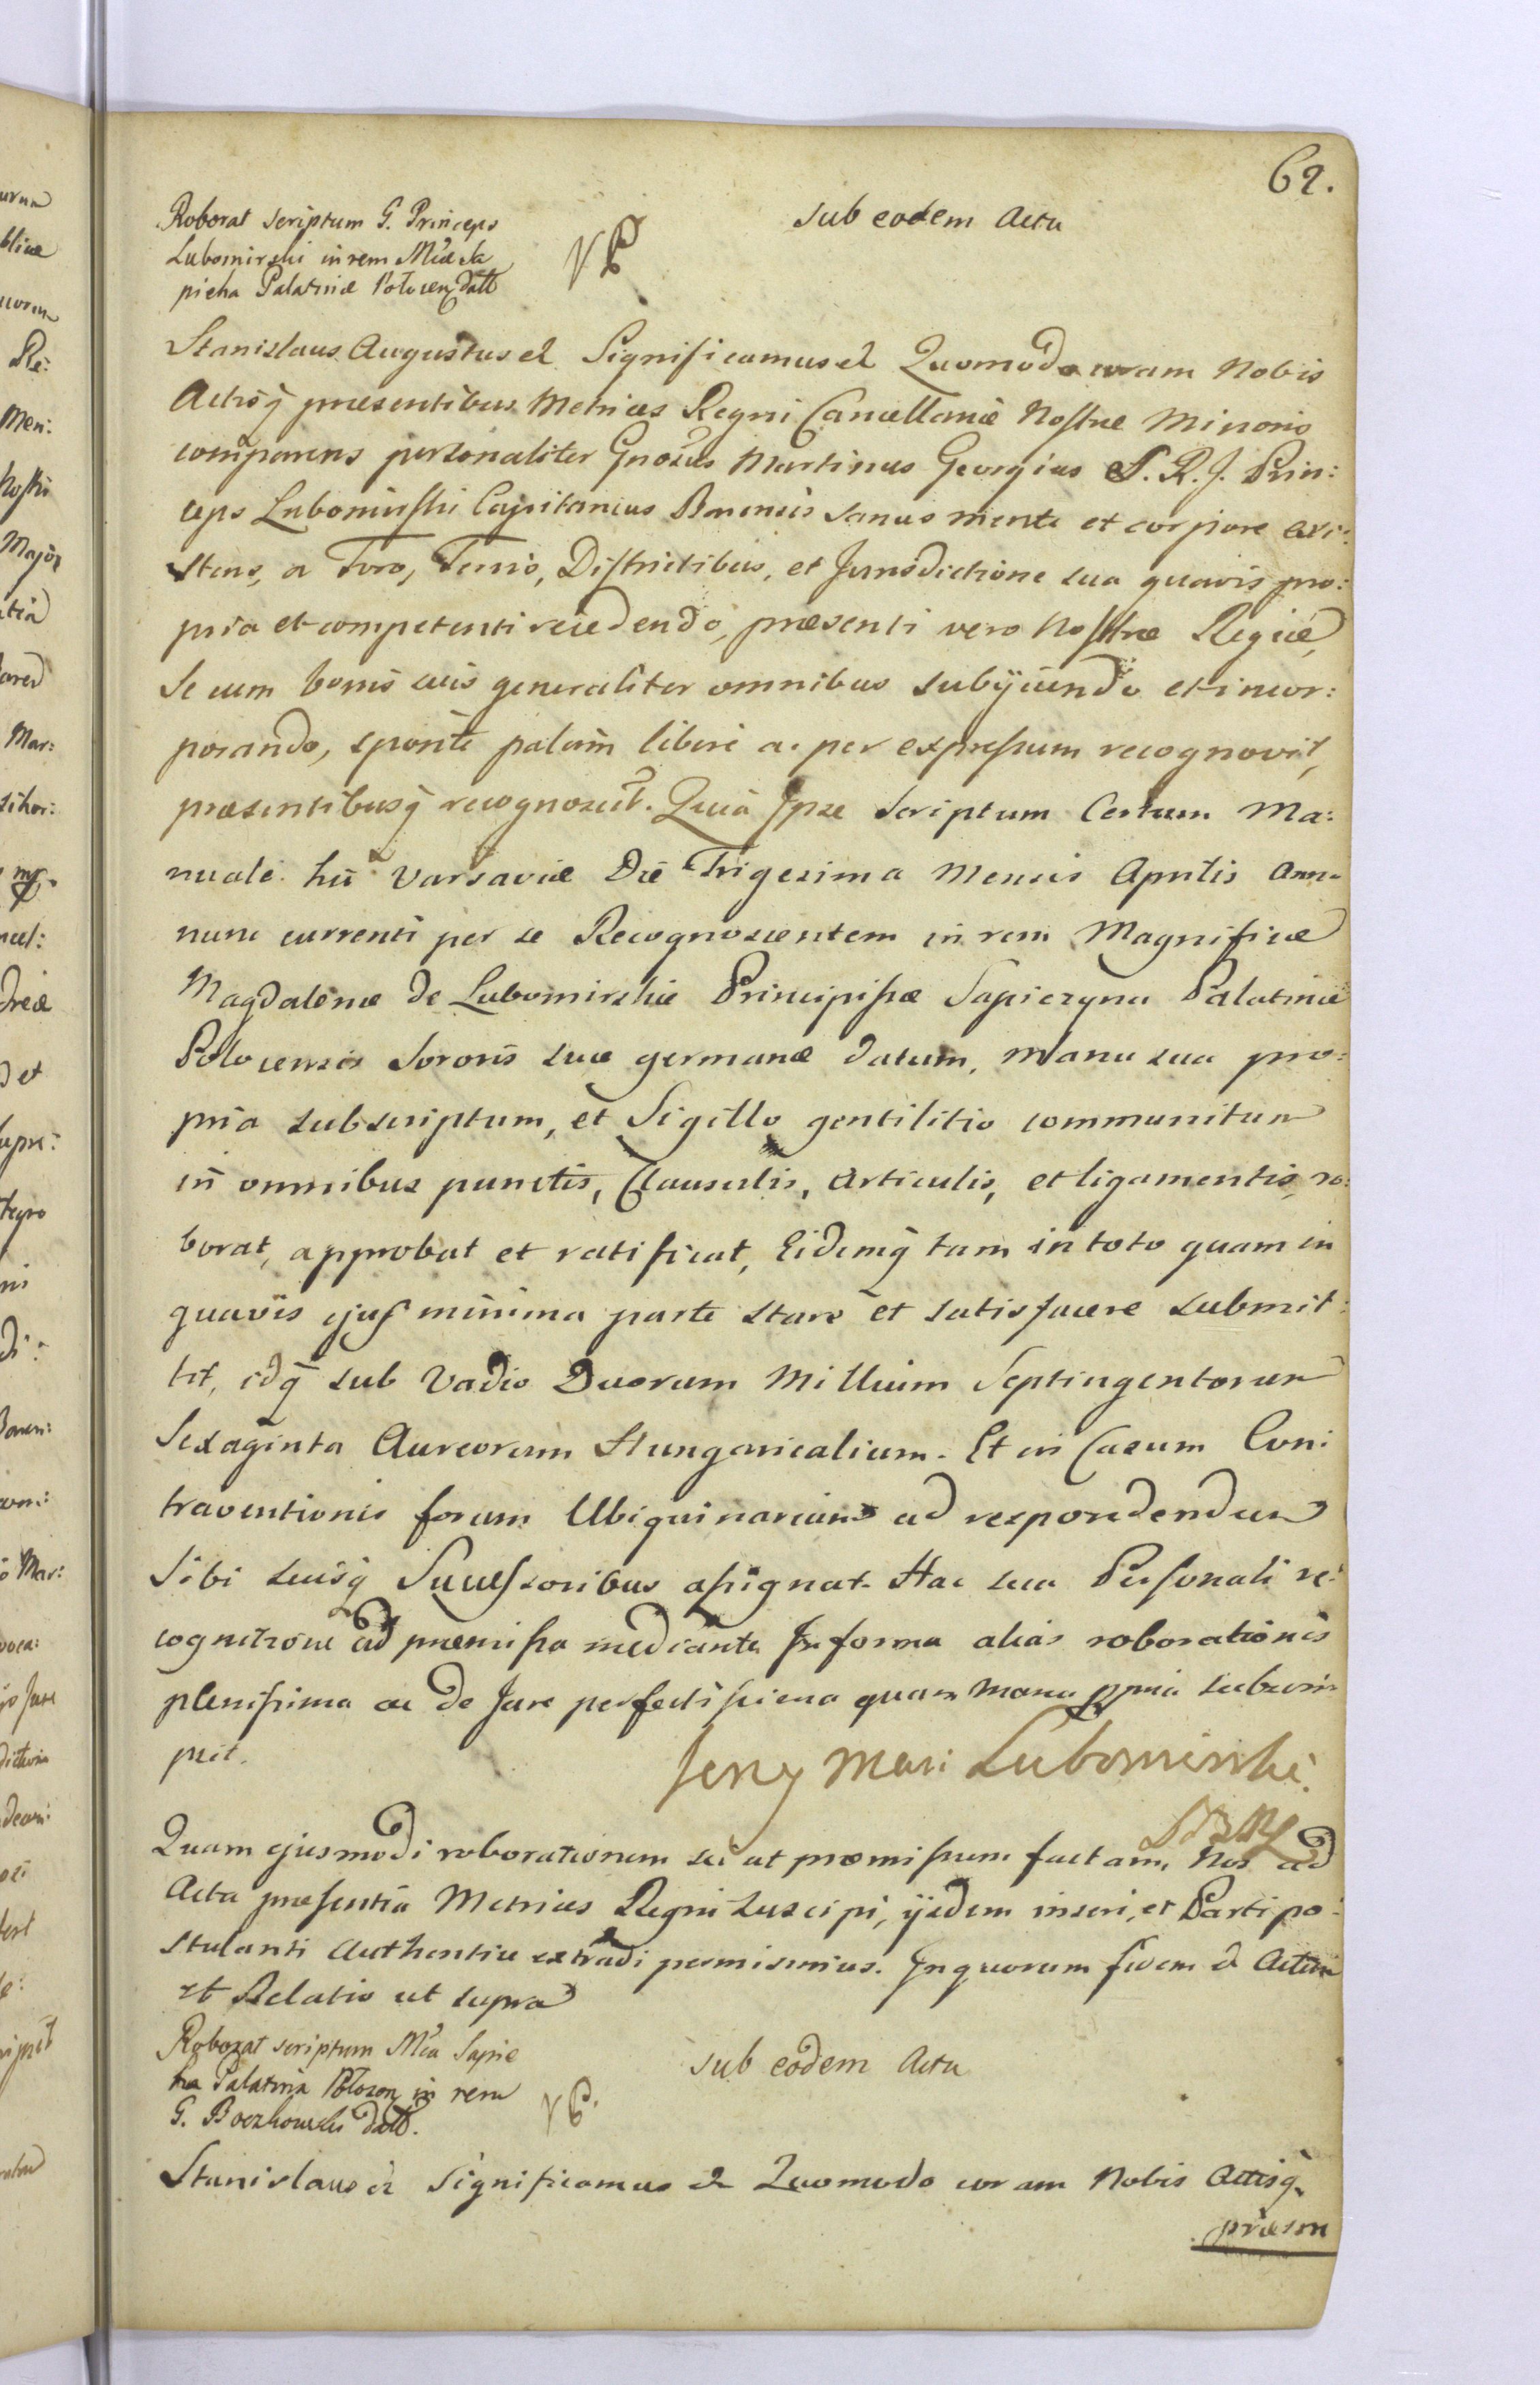 62.
Roborat scriptum G. Princeps
Lubomirski in rem Mcæ Sa
pieha Palatinæ Potocen Datt
sub eodem Actu
Stanislaus Augustus et Significamus et Quomodo coram Nobis
Actisq præsentibus Metrices Regni Cancellariæ Nostræ Minoris
comparens personaliter Gnosus Martinus Georgius S. R. J. Prin:
ceps Lubomirski Capitaneus Barensis sanus mente et corpore exi:
stens, a Foro, Terris, Districtibus, et Jurisdictione sua quavis pro:
pria et competenti recedendo, præsenti vero Nostræ Regiæ,
Se cum bonis suis generaliter omnibus subijciendo et incor:
porando, sponte palam libere ac per expressum recognovit,
præsentibusq recognoscit. Quia Jpse Scriptum Certum Ma:
nuale hic Varsaviæ Die Trigesima Mensis Aprilis Anno
nunc currenti per se Recognoscentem in rem Magnificæ
Magdalenæ de Lubomirskie Principissæ Sapiezyna Palatinæ
Polocensis Sororis suæ germanæ datum, Manu sua pro:
pria subscriptum, et Sigillo gentilitio communitum
in omnibus punctis, Clausulis, Articulis, et ligamentis, ro:
borat, approbat et ratificat, Eidemq tam in toto quam in
quavis ejus minima parte stare et satisfacere submit:
tit, idq sub Vadio Duorum Millium Septingentorum
Sexaginta Aureorum Hungaricalium. Et in Casum Con:
traventionis forum Ubiquinarium ad respondendum
Sibi suisq Successoribus assignat. Hac sua Personali re:
cognitione ad præmissa mediante Jn forma alias roborationis
plenissima ac de Jure perfectissima quam Manu ppria subscri
psit.
Jerzy Mar: Lubomirski.
Quam ejusmodi roborationem sic ut præmissum factam, Nos ad
Acta præsentia Metrices Regni suscipi, ijsdem inseri, et Parti po:
stulanti Authentice extradi permisimus. Jn quorum fidem et Actum
et Relatio ut supra
Roborat scriptum Mca Sapie
ha Palatina Polocen in rem
G. Boczkowski datt.
sub eodem Actu
Stanislaus et Significamus et Quomodo coram Nobis Actisq
præsen